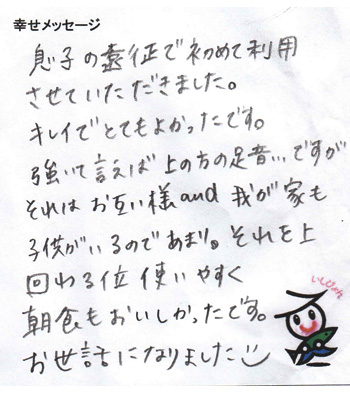 幸せメッセージ
息子の遠征で初めて利用
させていただきました。
キレイでとてもよかったです。
強いて言えば上の方の足音…ですが
それはお互い様and我が家も
子供がいるのであまり。それを上
回わる位使いやすく
朝食もおいしかったです。
お世話になりました
いしじゃん